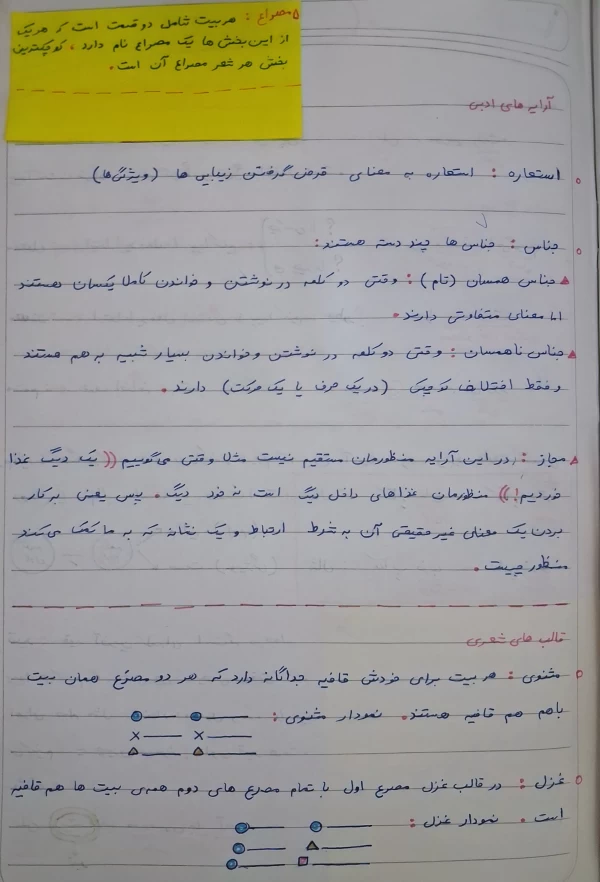 مصراع : هر بیت شامل دو قسمت است که هر یک
از این بخش ها یک مصراع نام دارد ، کوچکترین
بخش هر شعر مصراع آن است .
آرایه های ادبی
استعاره : استعاره به معنای قرض گرفتن زیبایی ها (ویژگی ها)
جناس : جناس ها چند دسته هستند :
جناس همسان (تام) : وقتی دو کلمه در نوشتن و خواندن کاملا یکسان هستند
اما معنای متفاوتی دارند .
جناس ناهمسان : وقتی دو کلمه در نوشتن و خواندن بسیار شبیه به هم هستند
و فقط اختلاف کوچکی (در یک حرف یا یک حرکت) دارند .
مجاز : در این آرایه منظورمان مستقیم نیست مثلا وقتی می گوییم ((یک دیگ غذا
خوردیم!)) منظورمان غذاهای داخل دیگ است نه خود دیگ . پس یعنی به کار
بردن یک معنای غیر حقیقی آن به شرط ارتباط و یک نشانه که به ما کمک می کند
منظور چیست .
قالب های شعری
مثنوی : هر بیت برای خودش قافیه جداگانه دارد که هر دو مصرع همان بیت
باهم هم قافیه هستند . نمودار مثنوی :
غزل : در قالب غزل مصرع اول با تمام مصرع های دوم همه ی بیت ها هم قافیه
است . نمودار غزل :